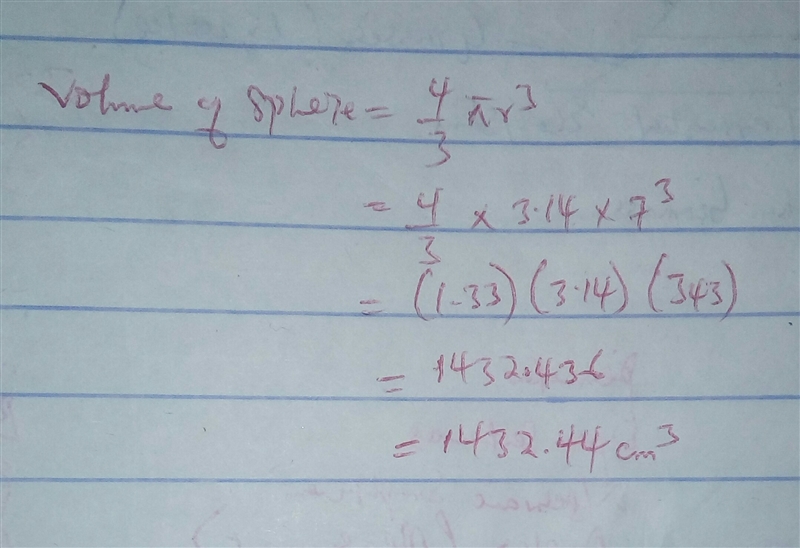 Volume of Sphere = 4/3 πr³
= 4/3 × 3.14 × 7³
= (1.33) (3.14) (343)
= 1432.436
= 1432.44 cm³